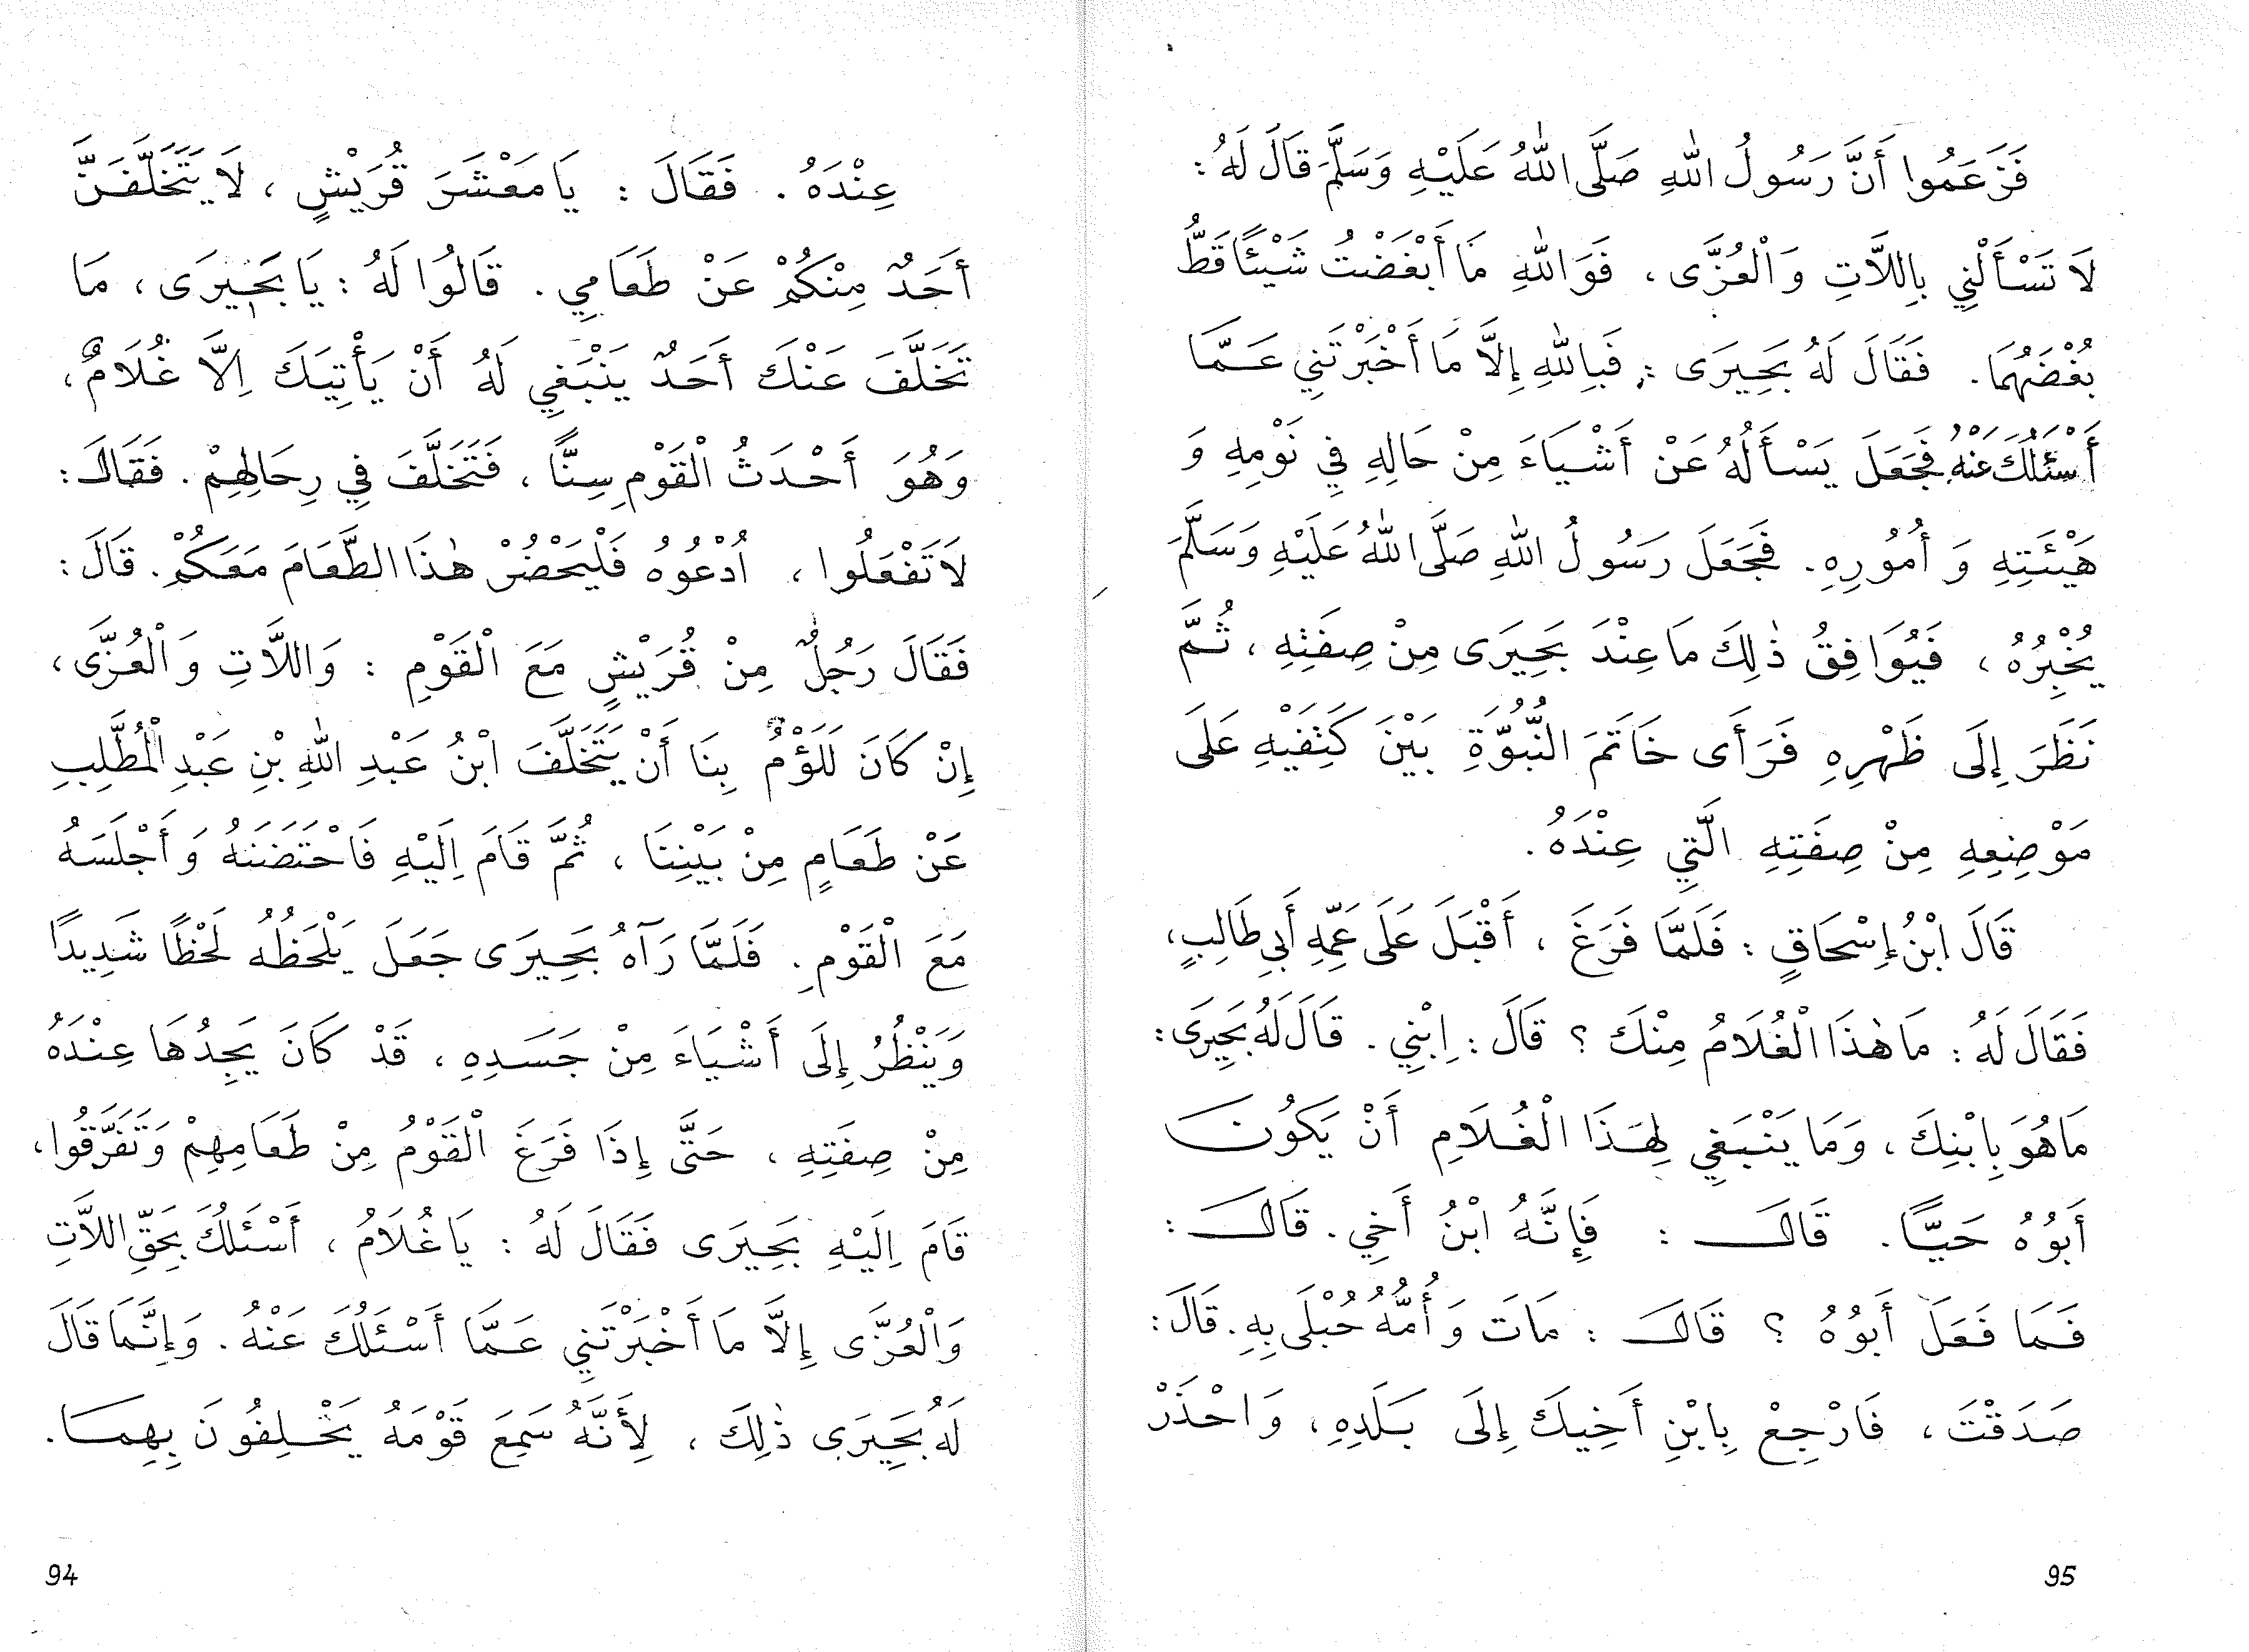 عِنْدَهُ. فَقَالَ : يَا مَعْشَرَ قُرَيْشٍ ، لَا يَتَخَلَّفَنَّ
أَحَدٌ مِنْكُمْ عَنْ طَعَامِي. قَالُوا لَهُ : يَا بَحِيرَى ، مَا
تَخَلَّفَ عَنْكَ أَحَدٌ يَنْبَغِي لَهُ أَنْ يَأْتِيَكَ اِلَّا غُلَامٌ ،
وَهُوَ أَحْدَثُ الْقَوْمِ سِنًّا ، فَتَخَلَّفَ فِي رِحَالِهِمْ. فَقَالَ :
لَا تَفْعَلُوا ، اُدْعُوهُ فَلْيَحْضُرْ هٰذَا الطَّعَامَ مَعَكُمْ. قَالَ :
فَقَالَ رَجُلٌ مِنْ قُرَيْشٍ مَعَ الْقَوْمِ : وَاللاَّتِ وَالْعُزَّى ،
إِنْ كَانَ لَلُؤْمٌ بِنَا أَنْ يَتَخَلَّفَ ابْنُ عَبْدِ اللهِ بْنِ عَبْدِ الْمُطَّلِبِ
عَنْ طَعَامٍ مِنْ بَيْنِنَا ، ثُمَّ قَامَ اِلَيْهِ فَاحْتَضَنَهُ وَأَجْلَسَهُ
مَعَ الْقَوْمِ. فَلَمَّا رَآهُ بَحِيرَى جَعَلَ يَلْحَظُهُ لَحْظًا شَدِيدًا
وَيَنْظُرُ إِلَى أَشْيَاءَ مِنْ جَسَدِهِ ، قَدْ كَانَ يَجِدُهَا عِنْدَهُ
مِنْ صِفَتِهِ ، حَتَّى إِذَا فَرَغَ الْقَوْمُ مِنْ طَعَامِهِمْ وَتَفَرَّقُوا ،
قَامَ اِلَيْهِ بَحِيرَى فَقَالَ لَهُ : يَا غُلَامُ ، أَسْئَلُكَ بِحَقِّ اللاَّتِ
وَالْعُزَّى إِلَّا مَا أَخْبَرْتَنِي عَمَّا أَسْئَلُكَ عَنْهُ. وَإِنَّمَا قَالَ
لَهُ بَحِيرَى ذٰلِكَ ، لِأَنَّهُ سَمِعَ قَوْمَهُ يَحْلِفُونَ بِهِمَا.
94
فَزَعَمُوا أَنَّ رَسُولُ اللهِ صَلَّى اللهُ عَلَيْهِ وَسَلَّمَ قَالَ لَهُ :
لَا تَسْأَلْنِي بِاللاَّتِ وَالْعُزَّى ، فَوَاللهِ مَا أَبْغَضْتُ شَيْئًا قَطُّ
بُغْضَهُمَا. فَقَالَ لَهُ بَحِيرَى : فَبِاللهِ إِلَّا مَا أَخْبَرْتَنِي عَمَّا
أَسْئَلُكَ عَنْهُ فَجَعَلَ يَسْأَلُهُ عَنْ أَشْيَاءَ مِنْ حَالِهِ فِي نَوْمِهِ وَ
هَيْئَتِهِ وَ أُمُورِهِ. فَجَعَلَ رَسُولُ اللهِ صَلَّى اللهُ عَلَيْهِ وَسَلَّمَ
يُخْبِرُهُ ، فَيُوَافِقُ ذٰلِكَ مَا عِنْدَ بَحِيرَى مِنْ صِفَتِهِ ، ثُمَّ
نَظَرَ إِلَى ظَهْرِهِ فَرَأَى خَاتَمَ النُّبُوَّةِ بَيْنَ كَتِفَيْهِ عَلَى
مَوْضِعِهِ مِنْ صِفَتِهِ الَّتِي عِنْدَهُ.
قَالَ ابْنُ إِسْحَاقٍ : فَلَمَّا فَرَغَ ، أَقْبَلَ عَلَى عَمِّهِ أَبِي طَالِبٍ ،
فَقَالَ لَهُ : مَا هٰذَا الْغُلَامُ مِنْكَ ؟ قَالَ : اِبْنِي. قَالَ لَهُ بَحِيرَى :
مَا هُوَ بِابْنِكَ ، وَمَا يَنْبَغِي لِهَذَا الْغُلَامِ أَنْ يَكُونَ
أَبُوُهُ حَيًّا. قَالَ : فَإِنَّهُ ابْنُ أَخِي. قَالَ :
فَمَا فَعَلَ أَبُوُهُ ؟ قَالَ : مَاتَ وَأُمُّهُ حُبْلَى بِهِ. قَالَ :
صَدَقْتَ ، فَارْجِعْ بِابْنِ أَخِيكَ إِلَى بَلَدِهِ ، وَاحْذَرْ
95